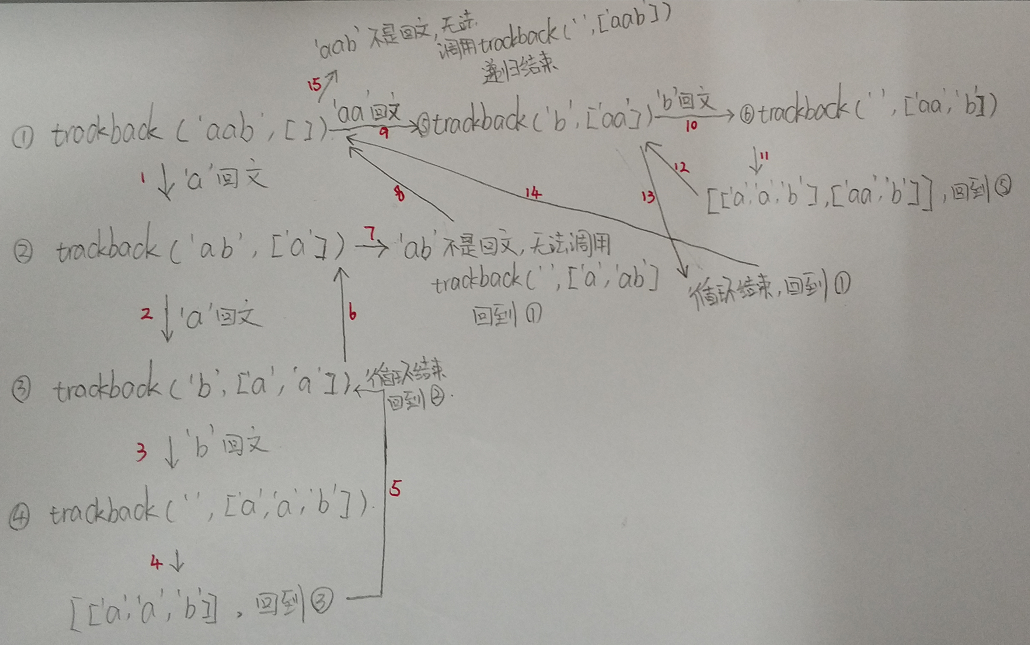 'aab'不是回文,无法
调用trackback('',['aab'])
递归结束
15
① trackback('aab',[]) 'aa'回文 9 ⑤trackback('b',['aa']) 'b'回文 10 ⑥trackback('',['aa','b'])
1 'a'回文
11
12
13
14
8
[['a','a','b'],['aa','b']],回到⑤
② trackback('ab',['a']) 7 'ab'不是回文,无法调用
trackback('',['a','ab']
回到①
循环结束,回到①
2 'a'回文
6
③ trackback('b',['a','a']) 循环结束
回到②.
3 'b'回文
5
④ trackback('',['a','a','b']).
4
[['a','a','b']],回到③